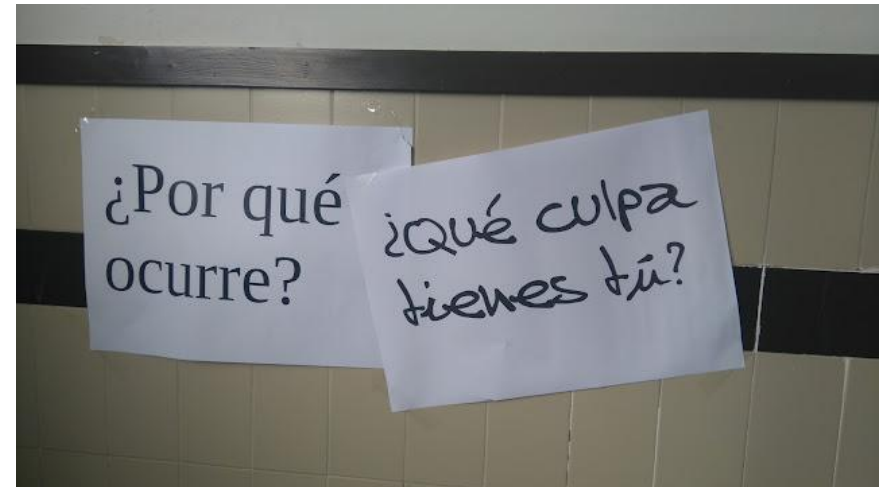 ¿Por qué
ocurre?
¿Qué culpa
tienes tú?